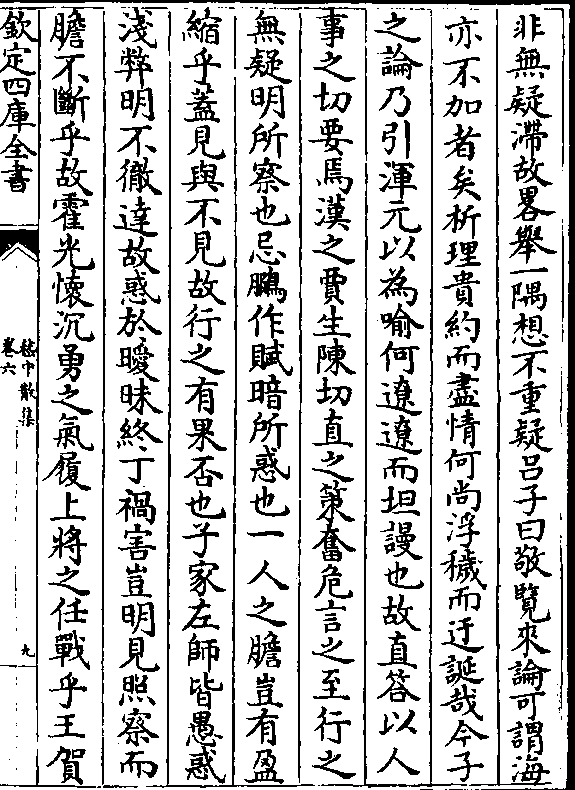 非無疑滯故畧舉一隅想不重疑呂子曰敬覽來論可謂海
亦不加者矣析理貴約而盡情何尚浮穢而迂誕哉今子
之論乃引渾元以為喻何遼遼而坦謾也故直答以人
事之切要焉漢之賈生陳切直之策奮危言之至行之
無疑明所察也忌鵩作賦暗所惑也一人之膽豈有盈
縮乎蓋見與不見故行之有果否也子家左師皆愚惑
淺弊明不徹達故惑於曖昧終丁禍害豈明見照察而
膽不斷乎故霍光懷沉勇之氣履上將之任戰乎王賀
欽定四庫全書
嵇中散集
卷六
九